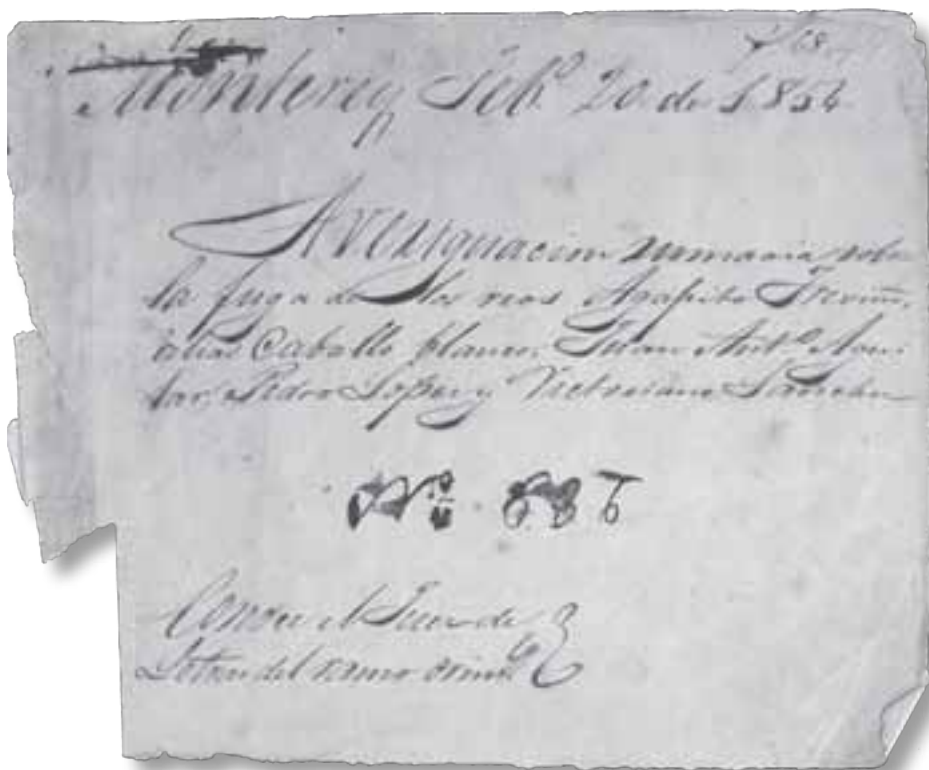 Monterey Feb.º 20 de 1854
Averiguacion sumaria sobre
la fuga de los reos Agapito Treviño,
alias Caballo blanco, Juan Antº Agui
lar, Pedro Lopez y Victoriano
Nº 836
Conoce el Juez de
Letras del ramo crim.l